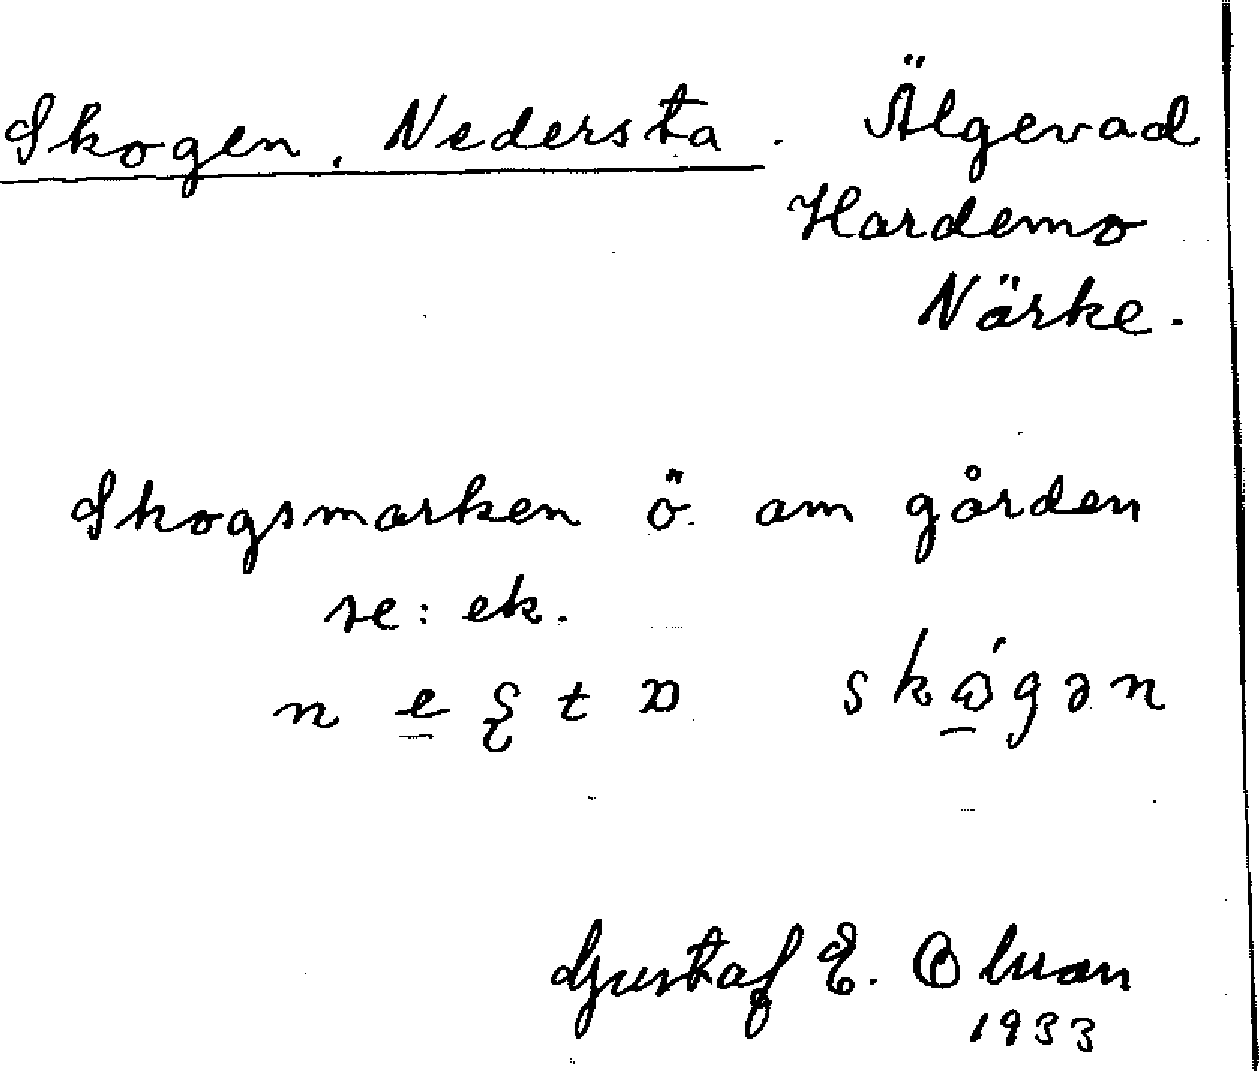 Skogen, Nedersta. Älgevad
Hardemo
Närke.
Skogsmarken ö. om gården
se: ek.
Gustaf E.
1933